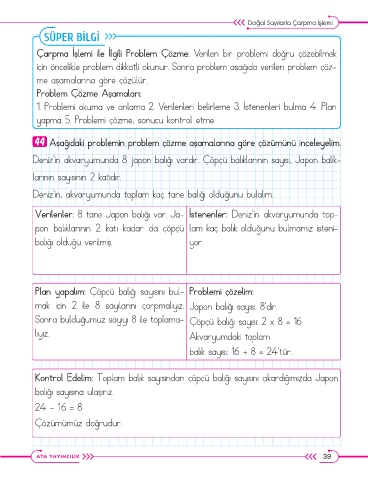 Doğal Sayılarla Çarpma İşlemi
SÜPER BİLGİ
Çarpma İşlemi ile İlgili Problem Çözme: Verilen bir problemi doğru çözebilmek
için öncelikle problem dikkatli okunur. Sonra problem aşağıda verilen problem çöz-
me aşamalarına göre çözülür.
Problem Çözme Aşamaları:
1. Problemi okuma ve anlama 2. Verilenleri belirleme 3. İstenenleri bulma 4. Plan
yapma 5. Problemi çözme, sonucu kontrol etme
44 Aşağıdaki problemin problem çözme aşamalarına göre çözümünü inceleyelim.
Deniz'in akvaryumunda 8 japon balığı vardır. Çöpçü balıklarının sayısı, Japon balık-
larının sayısının 2 katıdır.
Deniz'in, akvaryumunda toplam kaç tane balığı olduğunu bulalım.
Verilenler: 8 tane Japon balığı var. Ja-
pon balıklarının 2 katı kadar da çöpçü
balığı olduğu verilmiş.
İstenenler: Deniz'in akvaryumunda top-
lam kaç balık olduğunu bulmamız isteni-
yor.
Plan yapalım: Çöpçü balığı sayısını bul-
mak için 2 ile 8 sayılarını çarpmalıyız.
Sonra bulduğumuz sayıyı 8 ile toplama-
lıyız.
Problemi çözelim:
Japon balığı sayısı: 8'dir.
Çöpçü balığı sayısı: 2 x 8 = 16
Akvaryumdaki toplam
balık sayısı: 16 + 8 = 24'tür.
Kontrol Edelim: Toplam balık sayısından çöpçü balığı sayısını çıkardığımızda Japon
balığı sayısına ulaşırız.
24 - 16 = 8
Çözümümüz doğrudur.
ATA YAYINCILIK
39